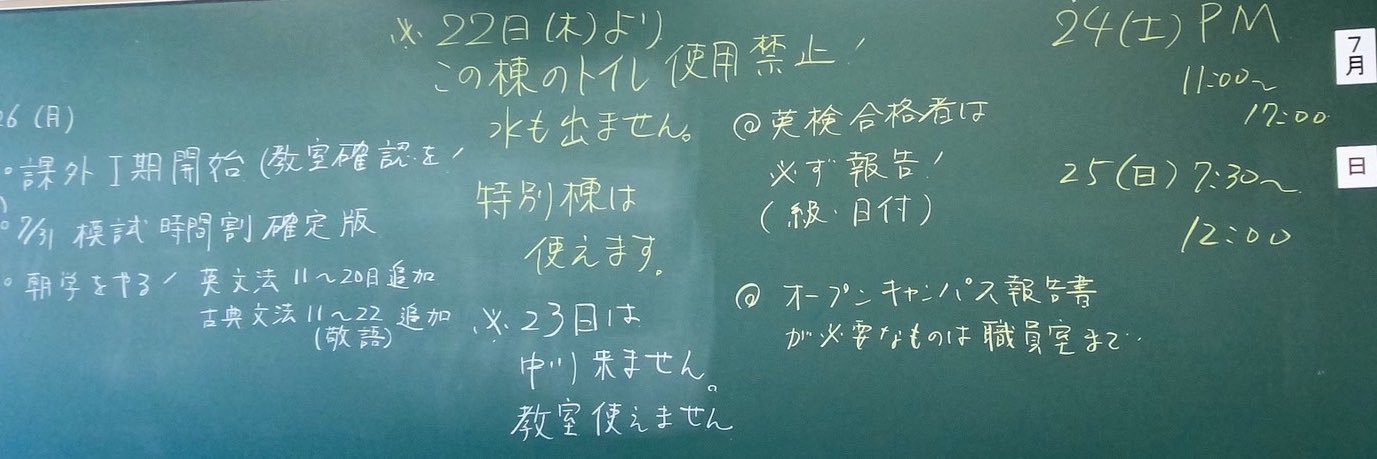 26 (月)
○課外Ⅰ期開始 (教室確認を!
○7/31 模試時間割確定版
○朝学をやる! 英文法 11～20日追加
古典文法 11～22 追加
(敬語)
※22日(木)より
この棟のトイレ使用禁止!
水も出ません。
特別棟は
使えます。
※23日は
中川来ません。
教室使えません
◎英検合格者は
必ず報告!
(級・日付)
◎オープンキャンパス報告書
が必要なものは職員室まで.
24(土) PM
11:00～
17:00
25(日) 7:30～
12:00
7月
日